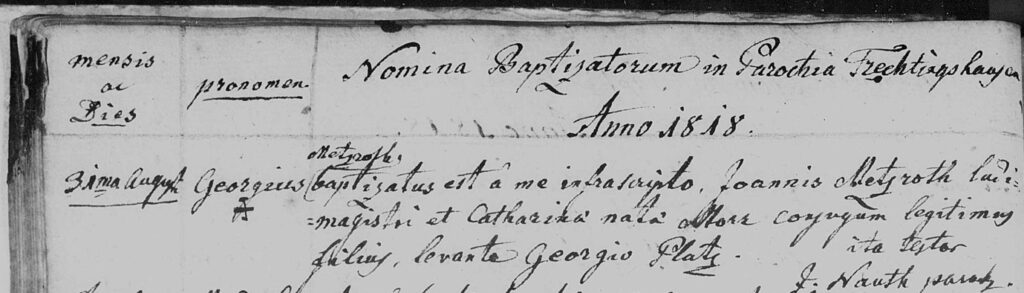 mensis
ac
Dies
pronomen
Nomina Baptizatorum in Parochia Trechtingshausen
Anno 1818.
Metzroth.
31ma August Georgius baptizatus est à me infrascripto, Joannis Metzroth ludi-
=magistri et Catharinâ natâ Morr conjugum legitimus
filius, levante Georgio Platz.
ita testor
J. Nauth paroch.